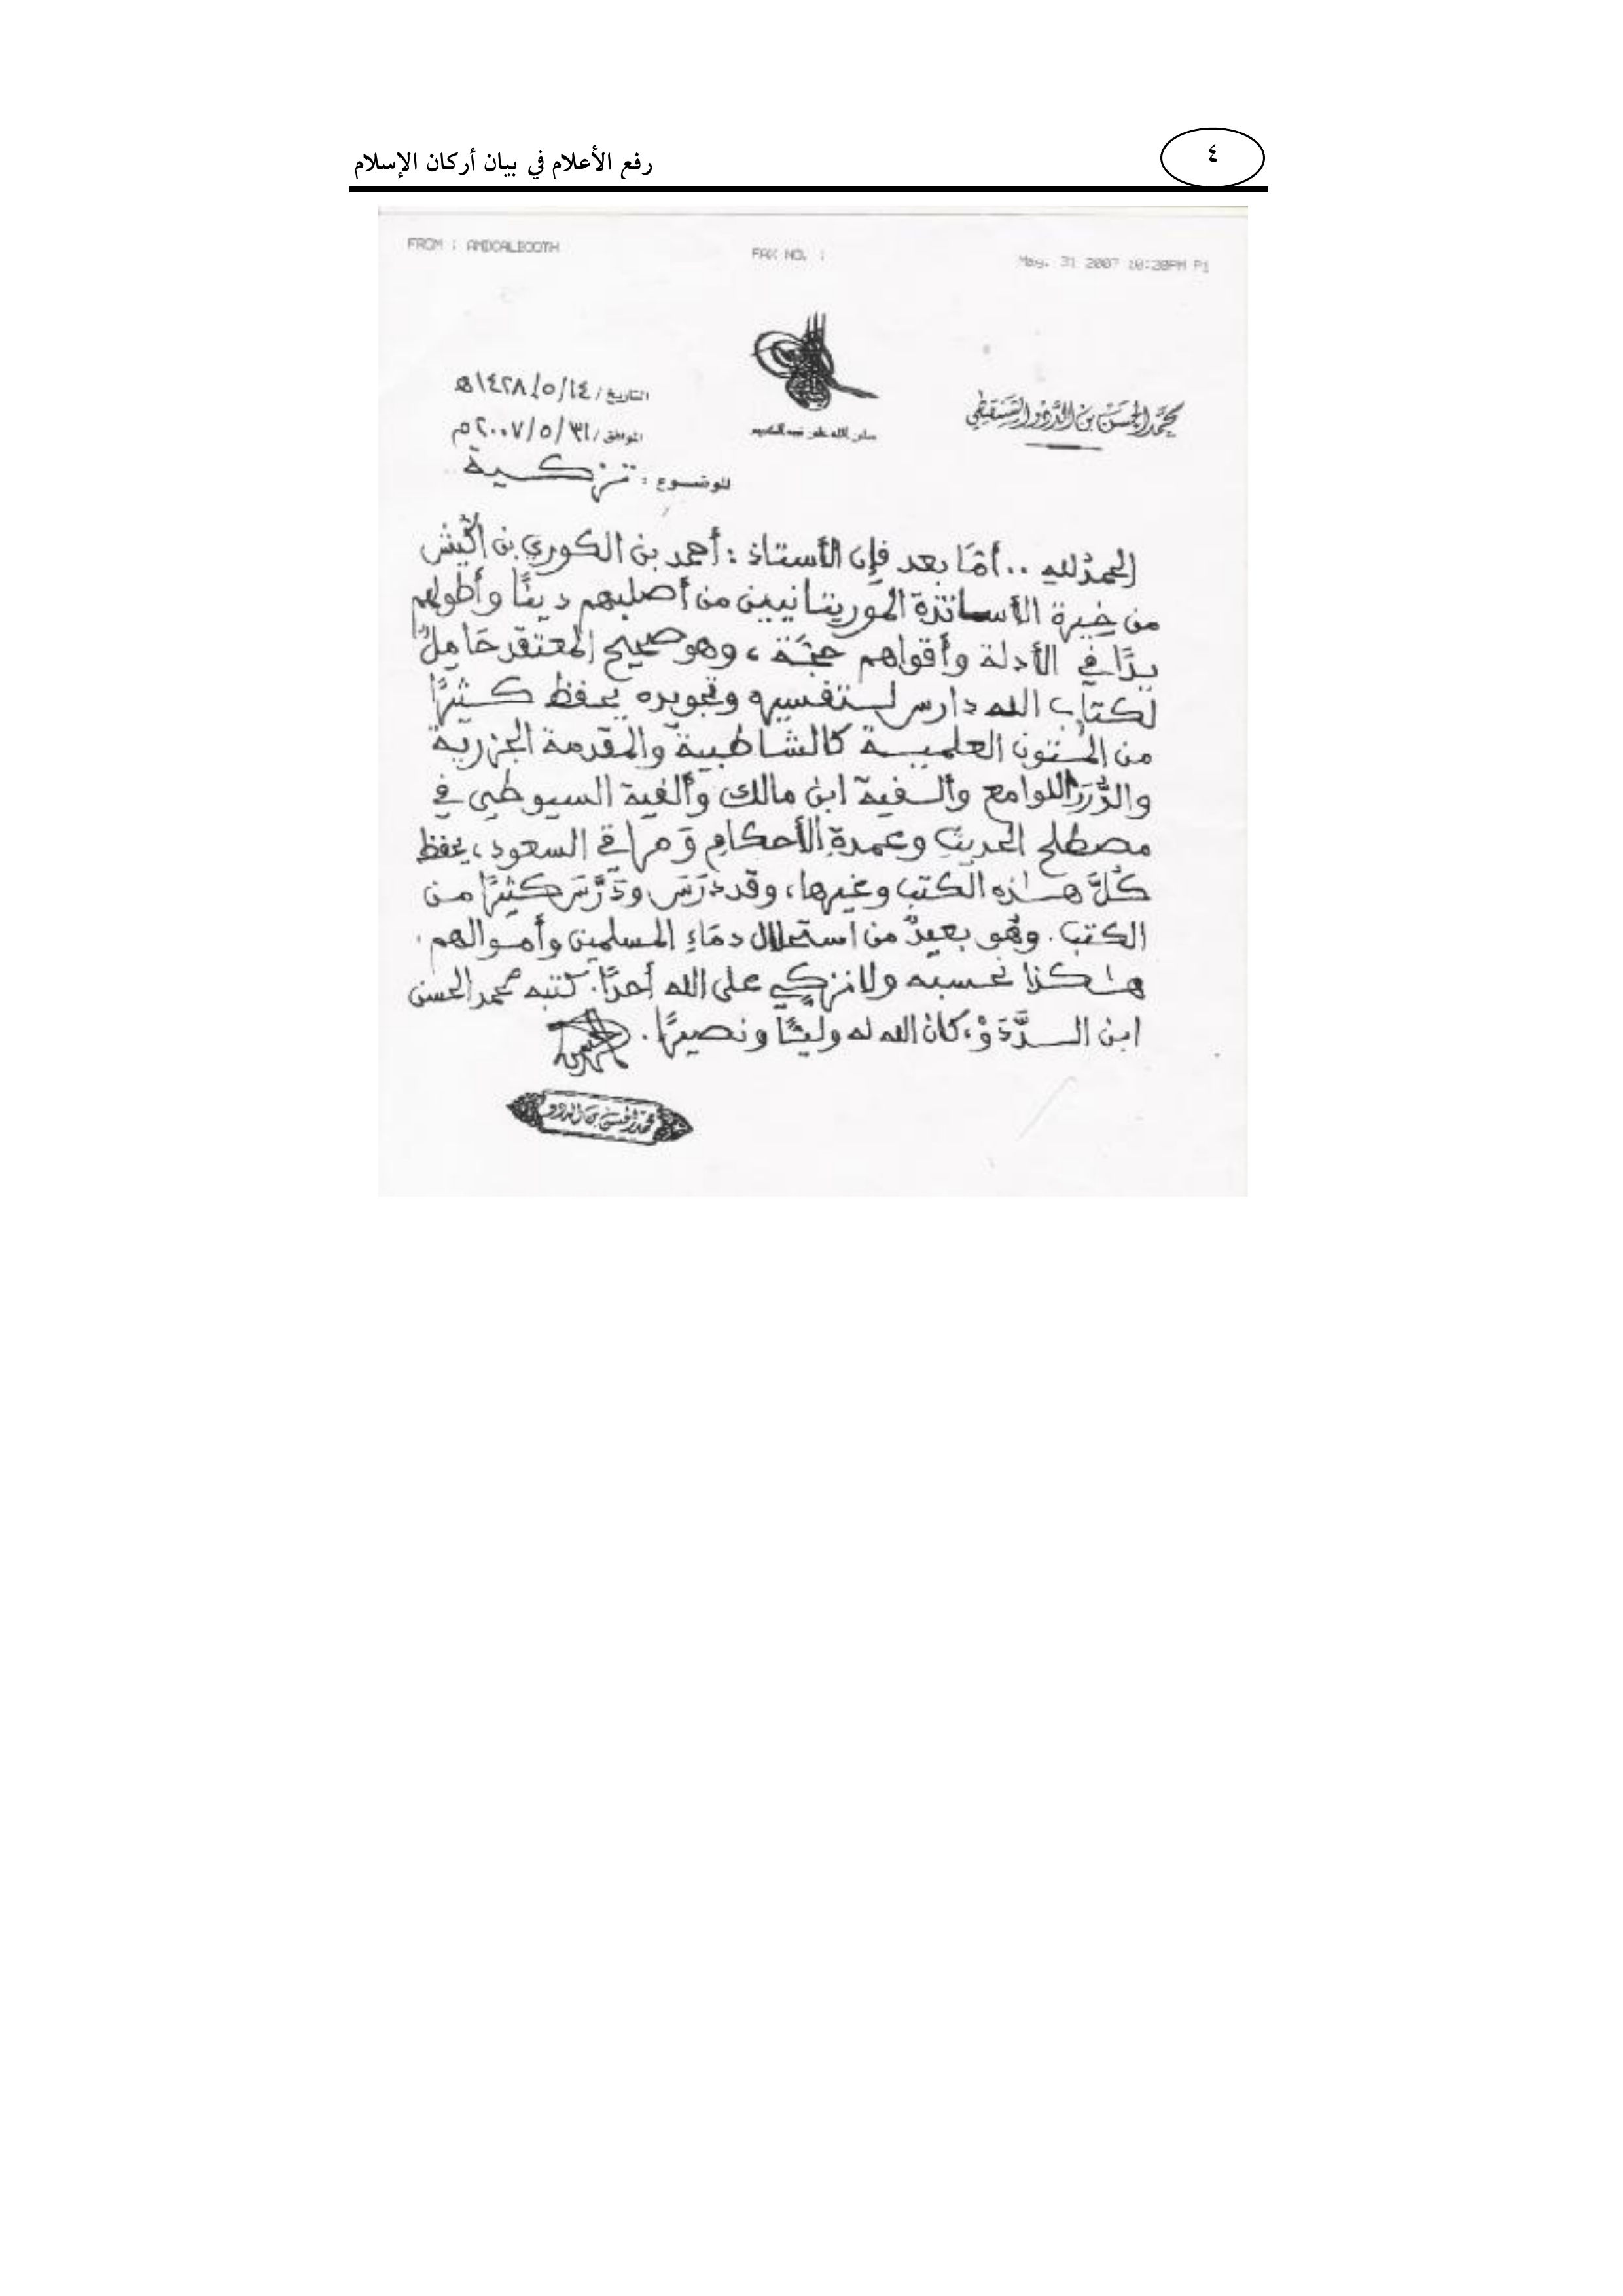 رفع الأعلام في بيان أركان الإسلام
٤
FROM : AMDCALBOOTH
FAX NO. :
May. 31 2007 10:20PM P1
محمد الحسن بن الددو الشنقيطي
التاريخ / ١٤/٥/١٤٢٨ه
الموافق / ٣١/٥/٢٠٠٧م
الموضوع : تزكية
الحمد لله .. أمَّا بعد فإن الأستاذ : أحمد بن الكوري بن
من خيرة الأساتذة الموريتانيين من أصلبهم دينًا وأطولهم
يدًا في الأدلة وأقواهم حجَّة ، وهو صحيح المعتقد حَامِلٌ
لكتاب الله دارس لتفسيره وتجويده يحفظ كثيرًا
من المتون العلمية كالشاطبية والمقدمة الجزرية
والدُّرَر اللوامع وألفية ابن مالك وألفية السيوطي في
مصطلح الحديث وعمدة الأحكام وَمراقي السعود ، يحفظ
كُلَّ هذه الكتب وغيرها ، وقد دَرَسَ ودَرَّسَ كثيرًا من
الكتب . وهو بعيدٌ من استحلال دمَاءِ المسلمين وأموالهم .
هكذا نحسبه ولا نزكي على الله أحدًا . كتبه محمد الحسن
ابن الدَّدَوْ ، كان الله له وليًّا ونصيرًا .
محمد الحسن بن الددو